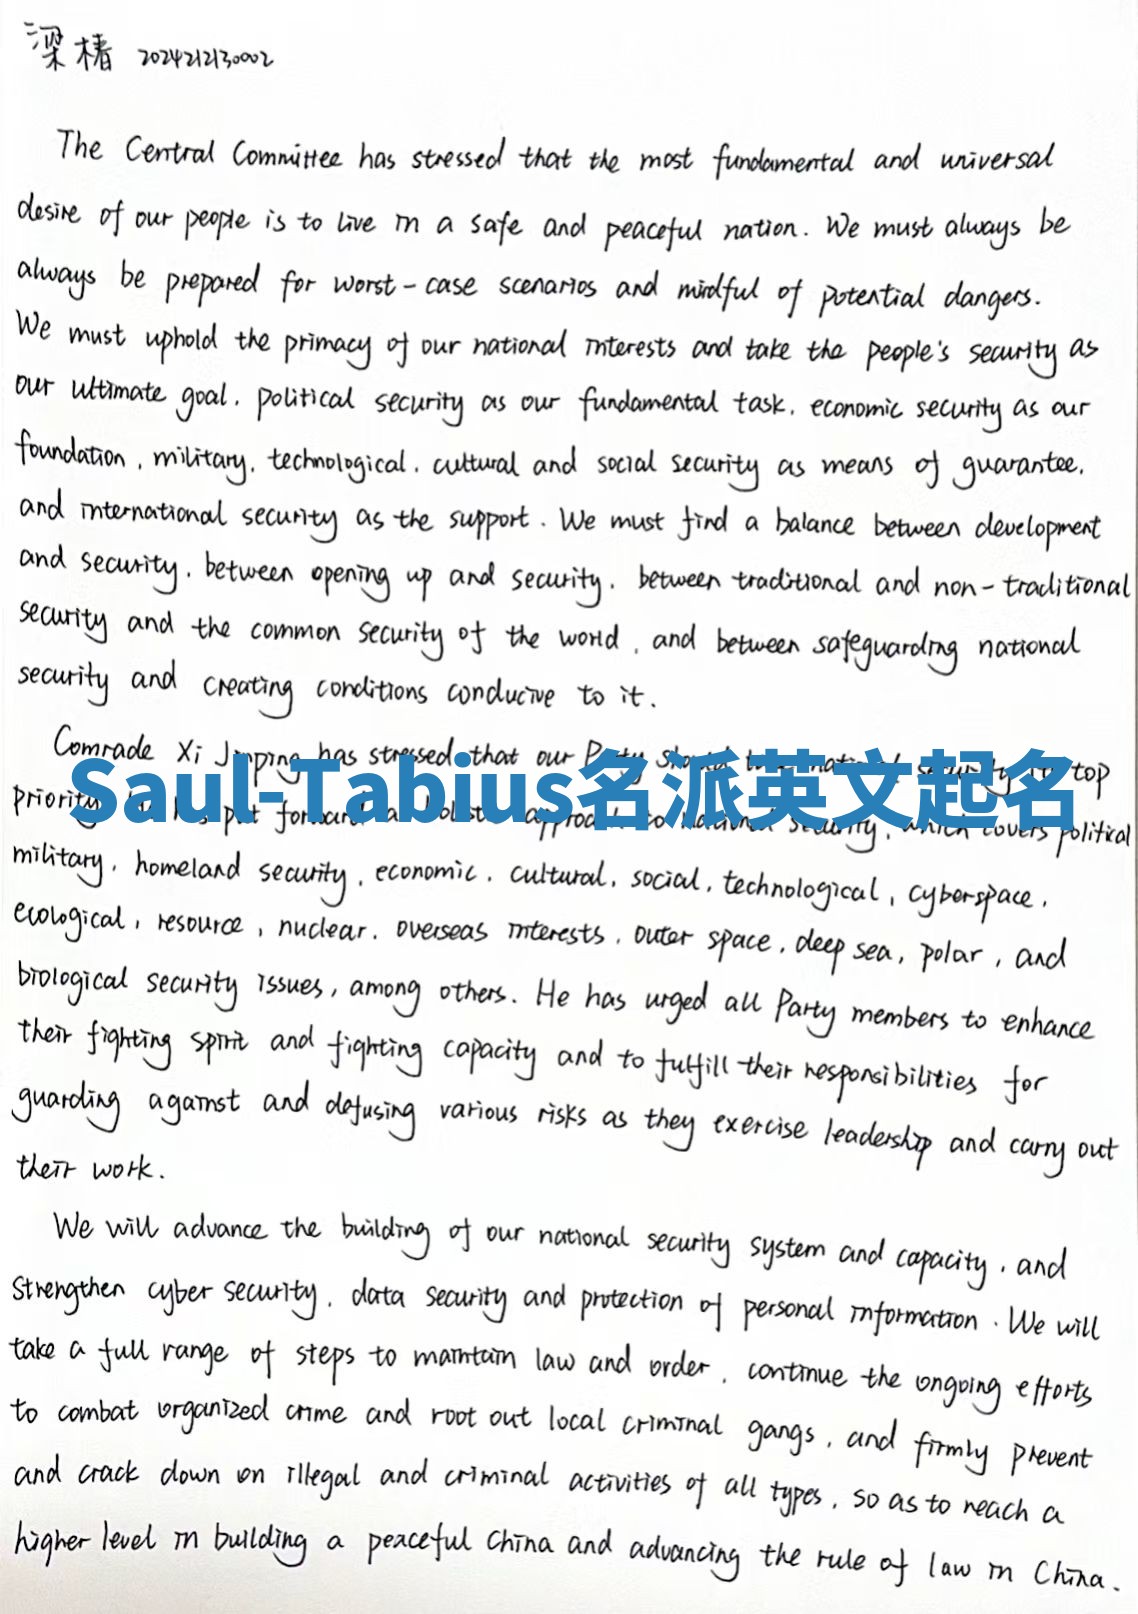 梁椿 2024212130002
The Central Committee has stressed that the most fundamental and universal
desire of our people is to live in a safe and peaceful nation. We must always be
always be prepared for worst-case scenarios and mindful of potential dangers.
We must uphold the primacy of our national interests and take the people's security as
our ultimate goal, political security as our fundamental task, economic security as our
foundation, military, technological, cultural and social security as means of guarantee,
and international security as the support. We must find a balance between development
and security, between opening up and security, between traditional and non-traditional
security and the common security of the world, and between safeguarding national
security and creating conditions conducive to it.
Comrade Xi Jinping has stressed that our Party should national security its top
Saul-Tabius名派英文起名
priority. put forward a holistic approach to national security, which covers political
military, homeland security, economic, cultural, social, technological, cyberspace,
ecological, resource, nuclear, overseas interests, outer space, deep sea, polar, and
biological security issues, among others. He has urged all Party members to enhance
their fighting spirit and fighting capacity and to fulfill their responsibilities for
guarding against and defusing various risks as they exercise leadership and carry out
their work.
We will advance the building of our national security system and capacity, and
strengthen cyber security, data security and protection of personal information. We will
take a full range of steps to maintain law and order, continue the ongoing efforts
to combat organized crime and root out local criminal gangs, and firmly prevent
and crack down on illegal and criminal activities of all types, so as to reach a
higher level in building a peaceful China and advancing the rule of law in China.